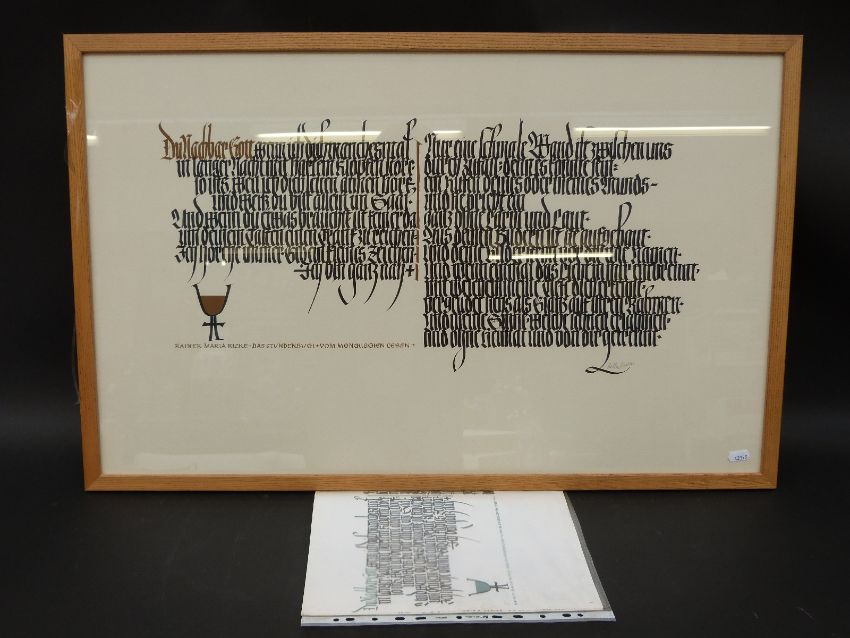 Du Nachbar Gott, wenn ich dich manchesmal
in langer Nacht mit hartem Klopfen störe·
so ists, weil ich dich selten atmen höre
und weiß: Du bist allein im Saal·
Und wenn du etwas brauchst, ist keiner da
um deinem Tasten einen Trank zu reichen·
Ich horche immer· Gieb ein kleines Zeichen·
Ich bin ganz nah +
RAINER MARIA RILKE · DAS STUNDENBUCH + VOM MÖNCHISCHEN LEBEN +
Nur eine schmale Wand ist zwischen uns
durch Zufall· denn es könnte sein:
ein Rufen deines oder meines Munds–
und sie bricht ein
ganz ohne Lärm und Laut·
Aus deinen Bildern ist sie aufgebaut·
und deine Bilder stehn vor dir wie Namen·
Und wenn einmal das Licht in mir entbrennt·
mit welchem meine Tiefe dich erkennt·
vergeudet sichs als Glanz auf ihren Rahmen·
Und meine Sinne, welche schnell erlahmen·
sind ohne Heimat und von dir getrennt·